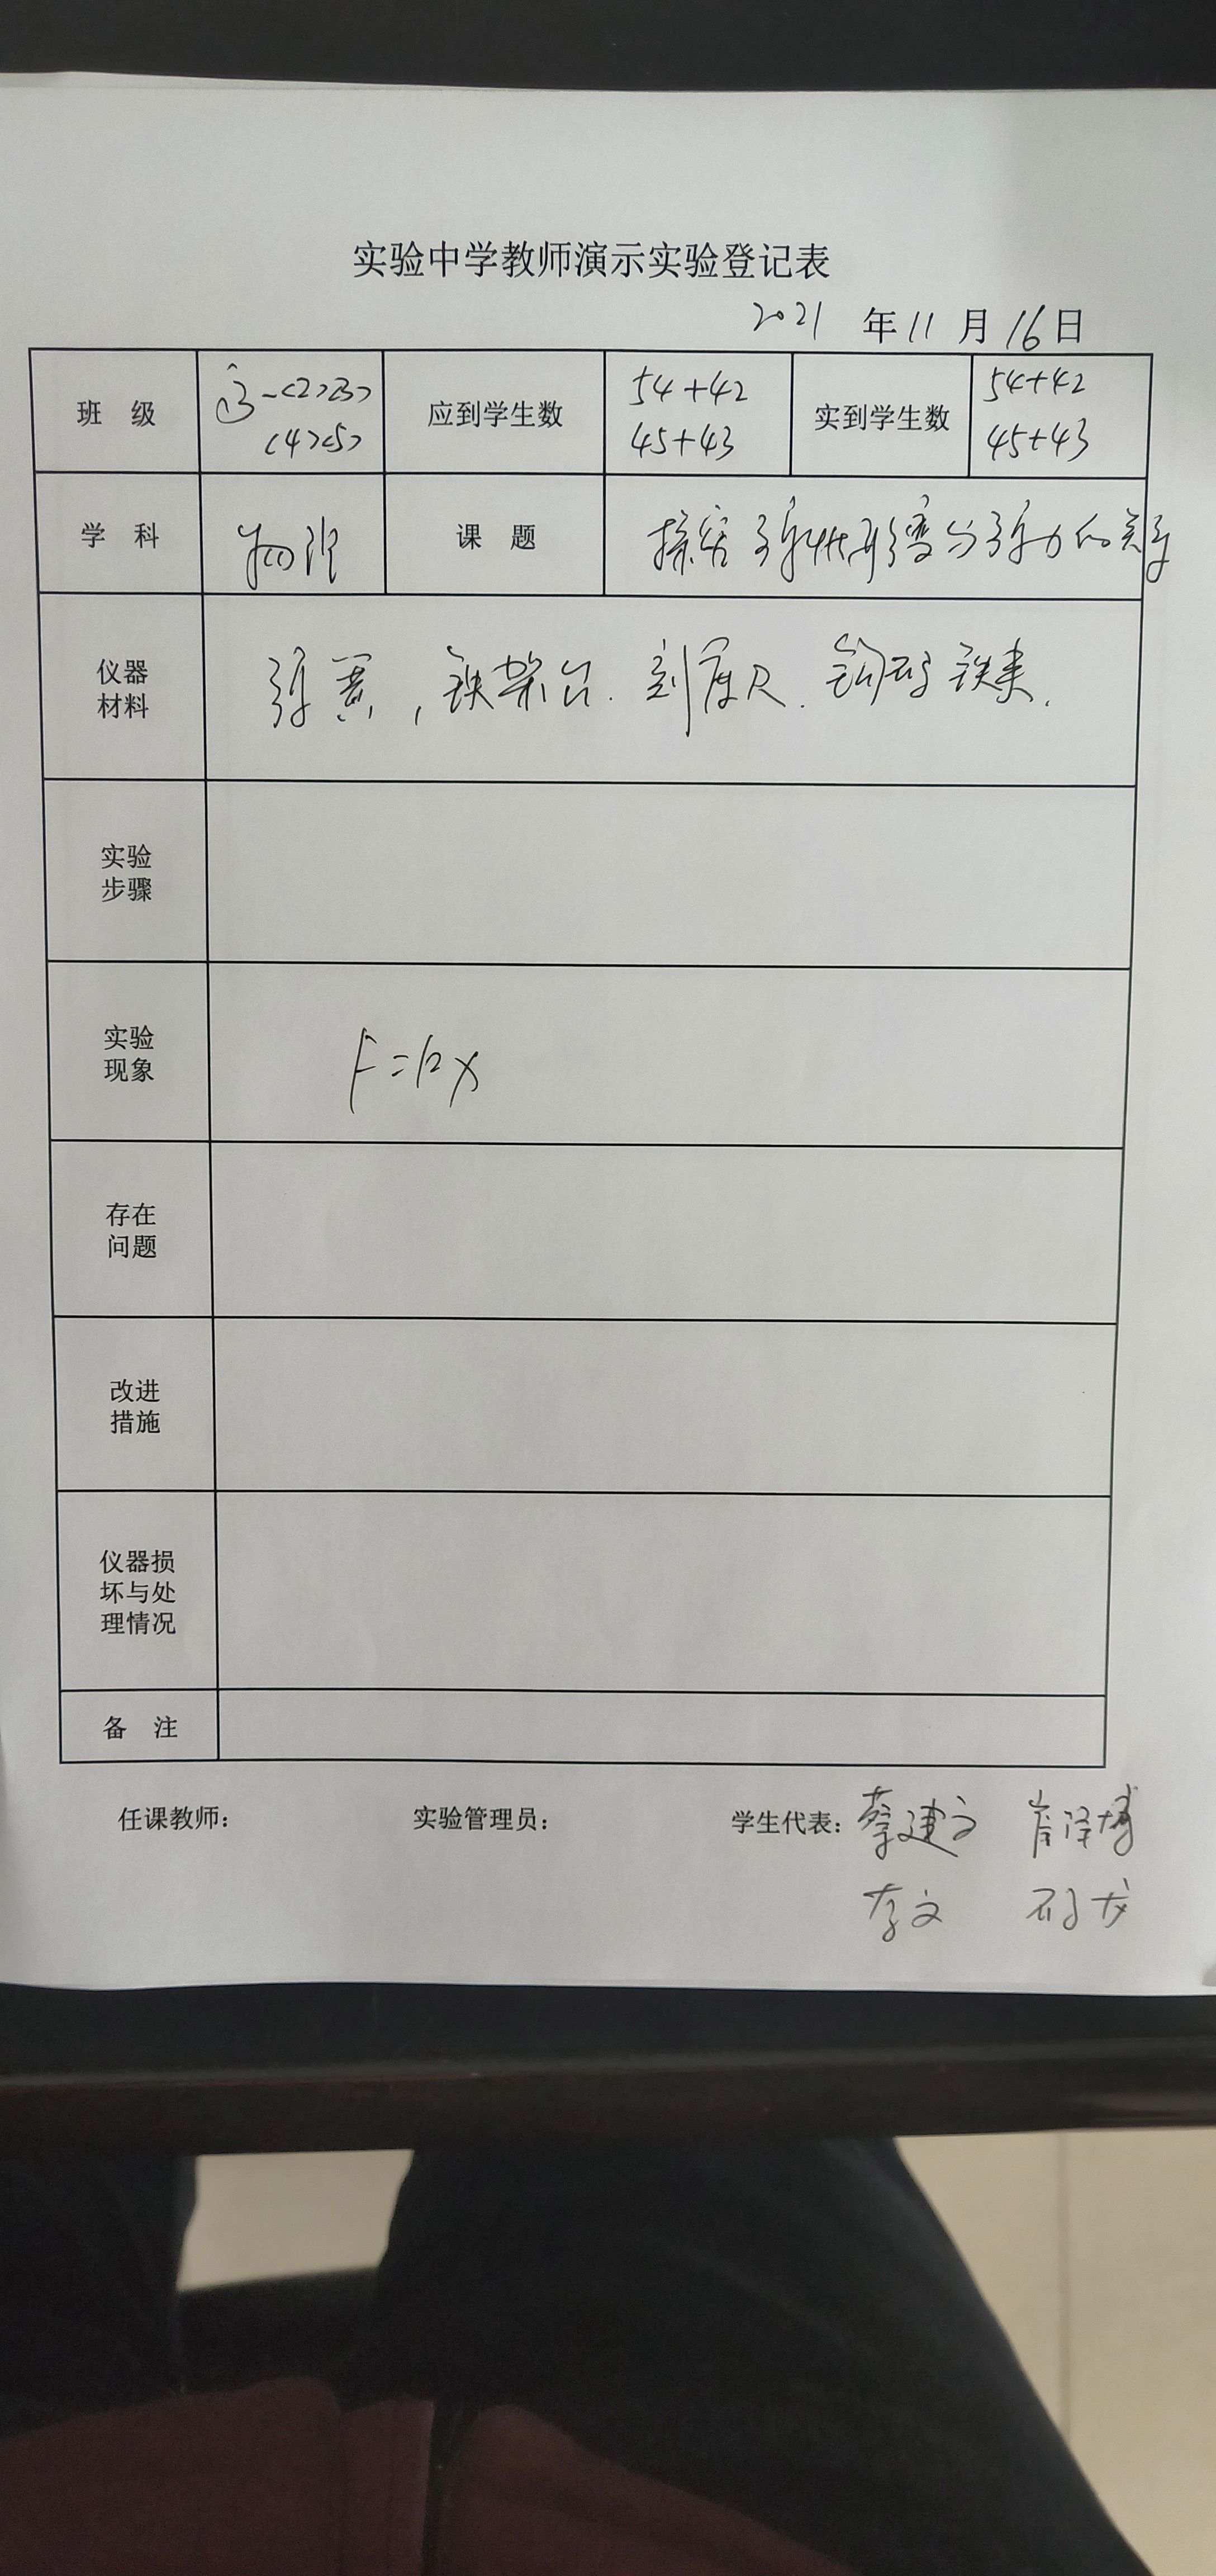 实验中学教师演示实验登记表
2021 年 11 月 16 日
班 级 高一<2><3> 应到学生数 54+42 实到学生数 54+42
<4><5> 45+43 45+43
学 科 物理 课 题 探究弹性形变与弹力的关系
仪器
材料 弹簧,铁架台.刻度尺.钩码 铁夹.
实验
步骤
实验
现象 F=kx
存在
问题
改进
措施
仪器损
坏与处
理情况
备 注
任课教师: 实验管理员: 学生代表: 蔡建文 肖泽博
李文